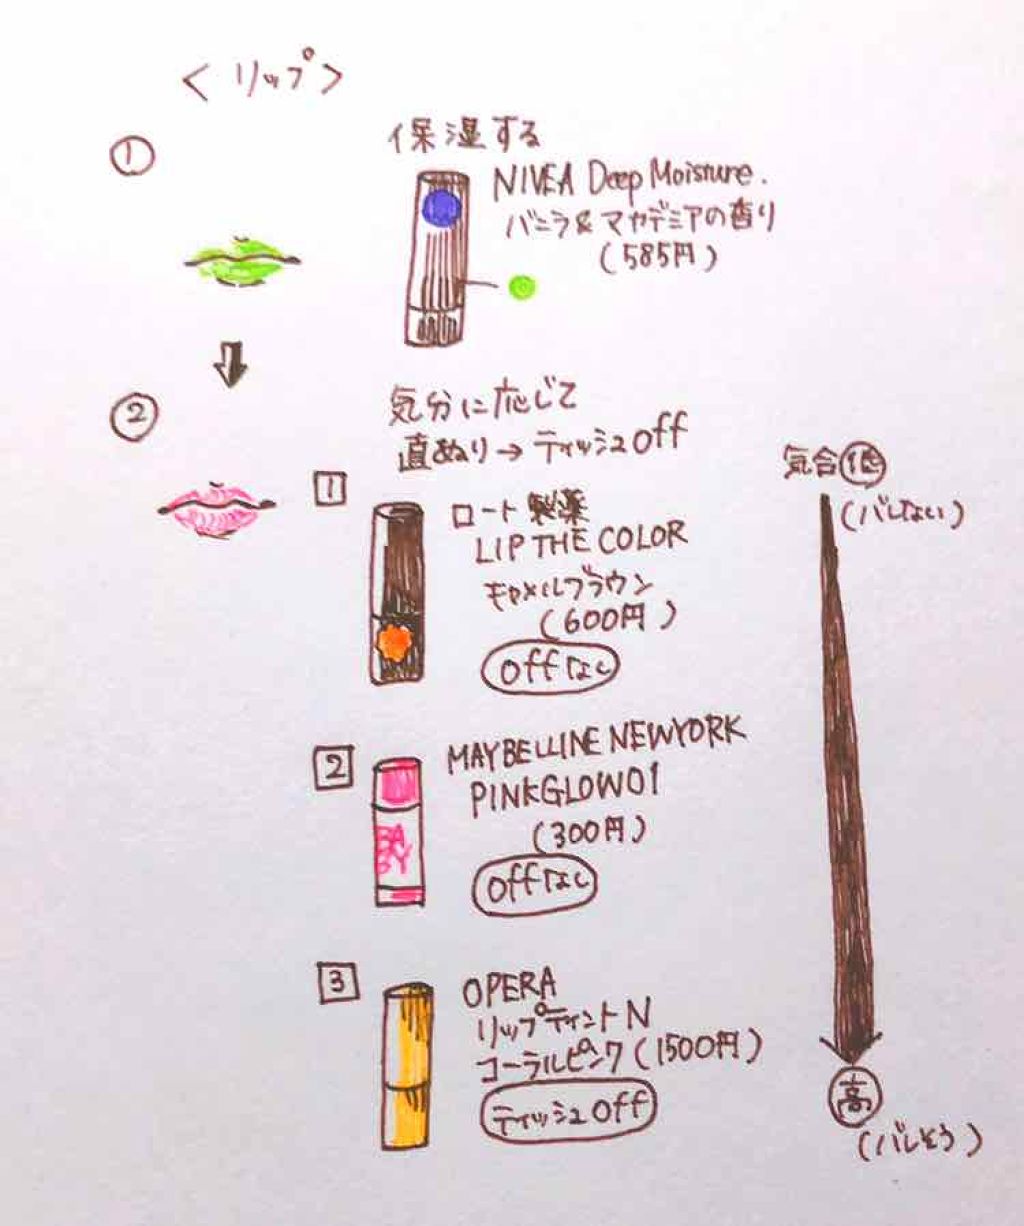 ＜リップ＞
①
保湿する
NIVEA Deep Moisture.
バニラ&マカデミアの香り
(585円)
②
気分に応じて
直ぬり→ティッシュoff
1
ロート製薬
LIP THE COLOR
キャメルブラウン
(600円)
offなし
2
MAYBELLINE NEWYORK
PINKGLOW01
(300円)
BA
BY
offなし
3
OPERA
リップティントN
コーラルピンク(1500円)
ティッシュoff
気合低
(バレない)
高
(バレそう)